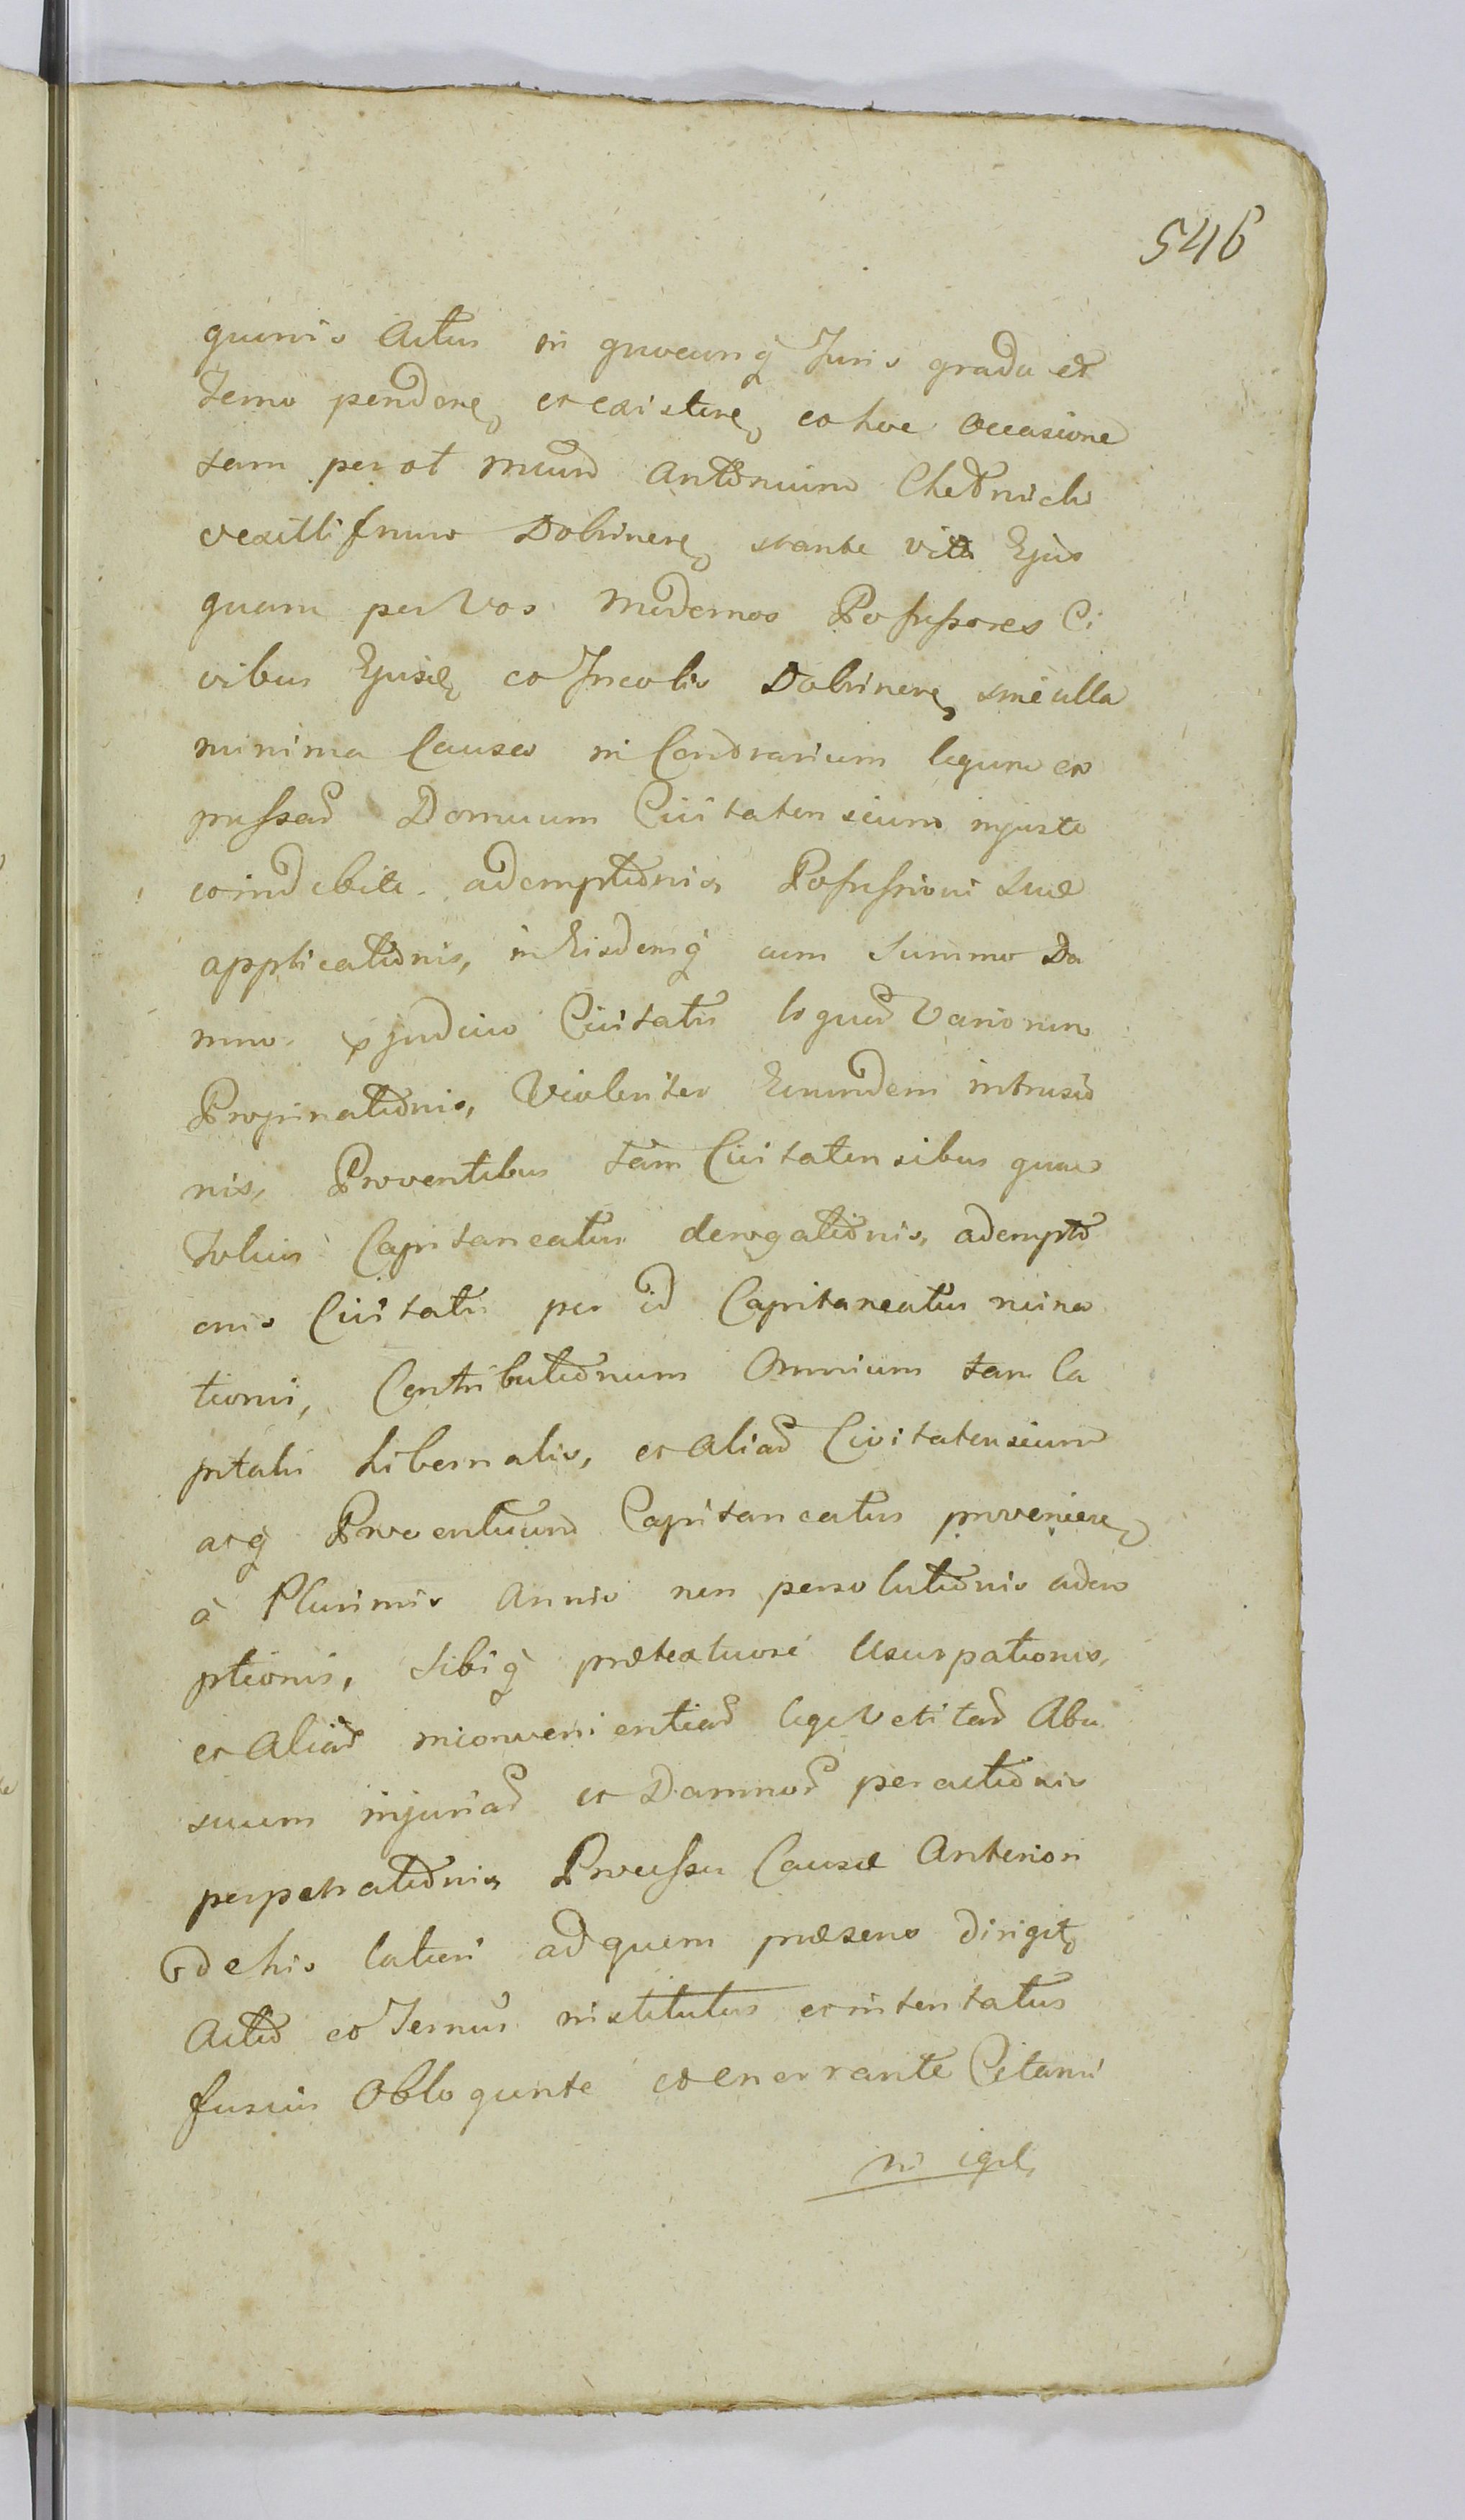 546
quinis Actus in quocunq Juris gradu et
Termo penden, et existen, et hoc occasione
tam per ol Mcum Antonium Chetmicki
Vexilliferum Dobrinen, stante vita Ejus
quam per Vos Modernos Possessores Ci
vibus Ejusd, et Incolis Dobrinen, sine ulla
minima Causa in Contrarium legum ex
pressar Domuum Civitatensium injuste
et indebite ademptionis Possessioni Suæ
applicationis, in Eisdemq cum Summo Da
mno, et pjudicio Civitatis liquor Variorum
Propinationis, Violenter Eorundem intrusio
nis, Proventibus tam Civitatensibus quam
totius Capitaneatus derogationis, adempti
onis Civitatis per id Capitaneatus ruina
tionis, Contributionum Omnium tam Ca
pitalis hibernalis, et aliar Civitatensium
atq Proventuum Capitaneatus provenien,
à Plurimis Annis non persolutionis adem
ptionis, Sibiq prætextuose Usurpationis,
et Aliar inconvenientiar lege Vetitar Abu
suum injuriar et Damnor peractionis
perpetrationis Processu Causæ Anterior
de his latiori ad quem præsens dirigit,
Actio et Termus institutus et intentatus
fusius Obloquente et enarrante Citami